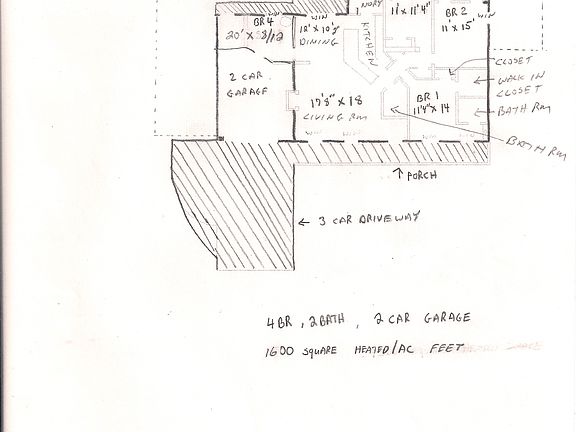 NDRY
BR 4
20' X 8/12
WIN
12' X 10'
DINING
KITCHEN
11' X 11'4"
BR 2
WIN
11' X 15'
2 CAR
GARAGE
17'8" X 18
LIVING RM
BR 1
11'4" X 14
CLOSET
WALK IN
CLOSET
BATH RM
BATH RM
PORCH
3 CAR DRIVEWAY
4 BR, 2 BATH, 2 CAR GARAGE
1600 SQUARE HEATED/AC FEET